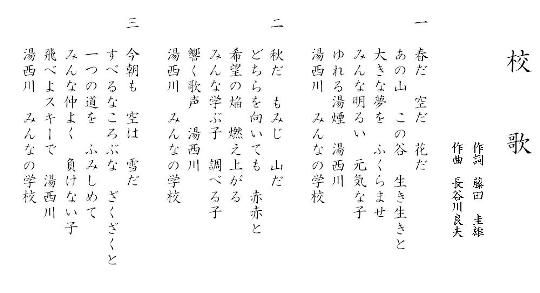 校歌
作詞 藤田 圭雄
作曲 長谷川良夫
一
春だ 空だ 花だ
あの山 この谷 生き生きと
大きな夢を ふくらませ
みんな明るい 元気な子
ゆれる湯煙 湯西川
湯西川 みんなの学校
二
秋だ もみじ 山だ
どちらを向いても 赤赤と
希望の焔 燃え上がる
みんな学ぶ子 調べる子
響く歌声 湯西川
湯西川 みんなの学校
三
今朝も 空は 雪だ
すべるなころぶな ざくざくと
一つの道を ふみしめて
みんな仲よく 負けない子
飛べよスキーで 湯西川
湯西川 みんなの学校